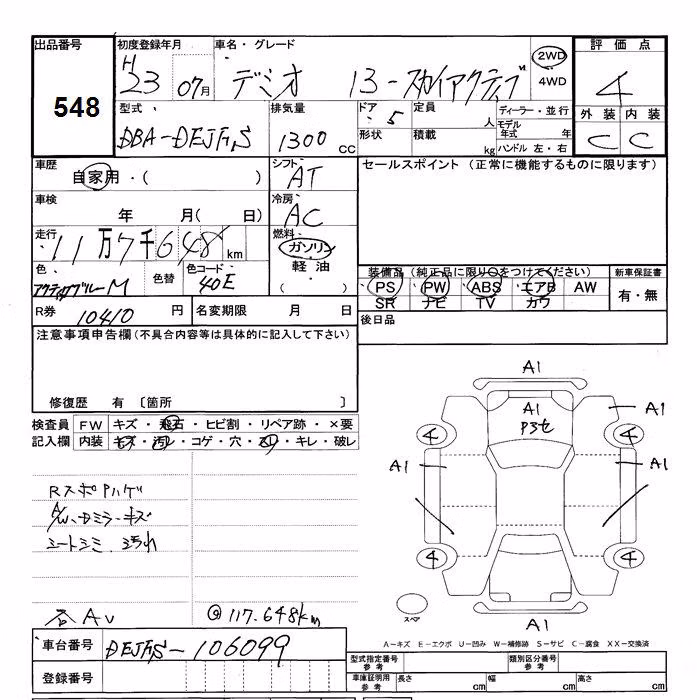 出品番号 初度登録年月 車名・グレード 評価点
548
H23 07月 デミオ 13-スカイアクティブ 2WD 4WD
4
型式 排気量 ドア 定員 ディーラー・並行 外装 内装
DBA-DEJFS 1300 CC 5 人 モデル年式 年 C C
形状 積載 kg ハンドル 左・右
車歴 自家用・( ) シフト AT
セールスポイント (正常に機能するものに限ります)
車検 年 月( 日) 冷房 AC
走行 11万7千648km 燃料 ガソリン
軽油
( )
色 色替 色コード 40E
R券 10410 円 名変期限 月 日
装備品 (純正品に限り○をつけてください) 新車保証書
PS PW ABS エアB AW 有・無
SR ナビ TV カワ
後日品
注意事項申告欄 (不具合内容等は具体的に記入して下さい)
修復歴 有 〔箇所 〕
検査員 FW キズ・飛石・ヒビ割・リペア跡・×要
記入欄 内装 キズ・汚レ・コゲ・穴・スリ・キレ・破レ
RスポPハゲ
A/W、Dミラーキズ
シートシミ 汚れ
@117.648km
A1
A1
A1
A1
A1
A1
4
4
4
4
スペア
A-キズ E-エクボ U-凹み W-補修跡 S-サビ C-腐食 XX-交換済
車台番号 DEJFS-106099
登録番号
型式指定番号 参考 類別区分番号 参考
車庫証明用 参考 長さ cm 幅 cm 高さ cm